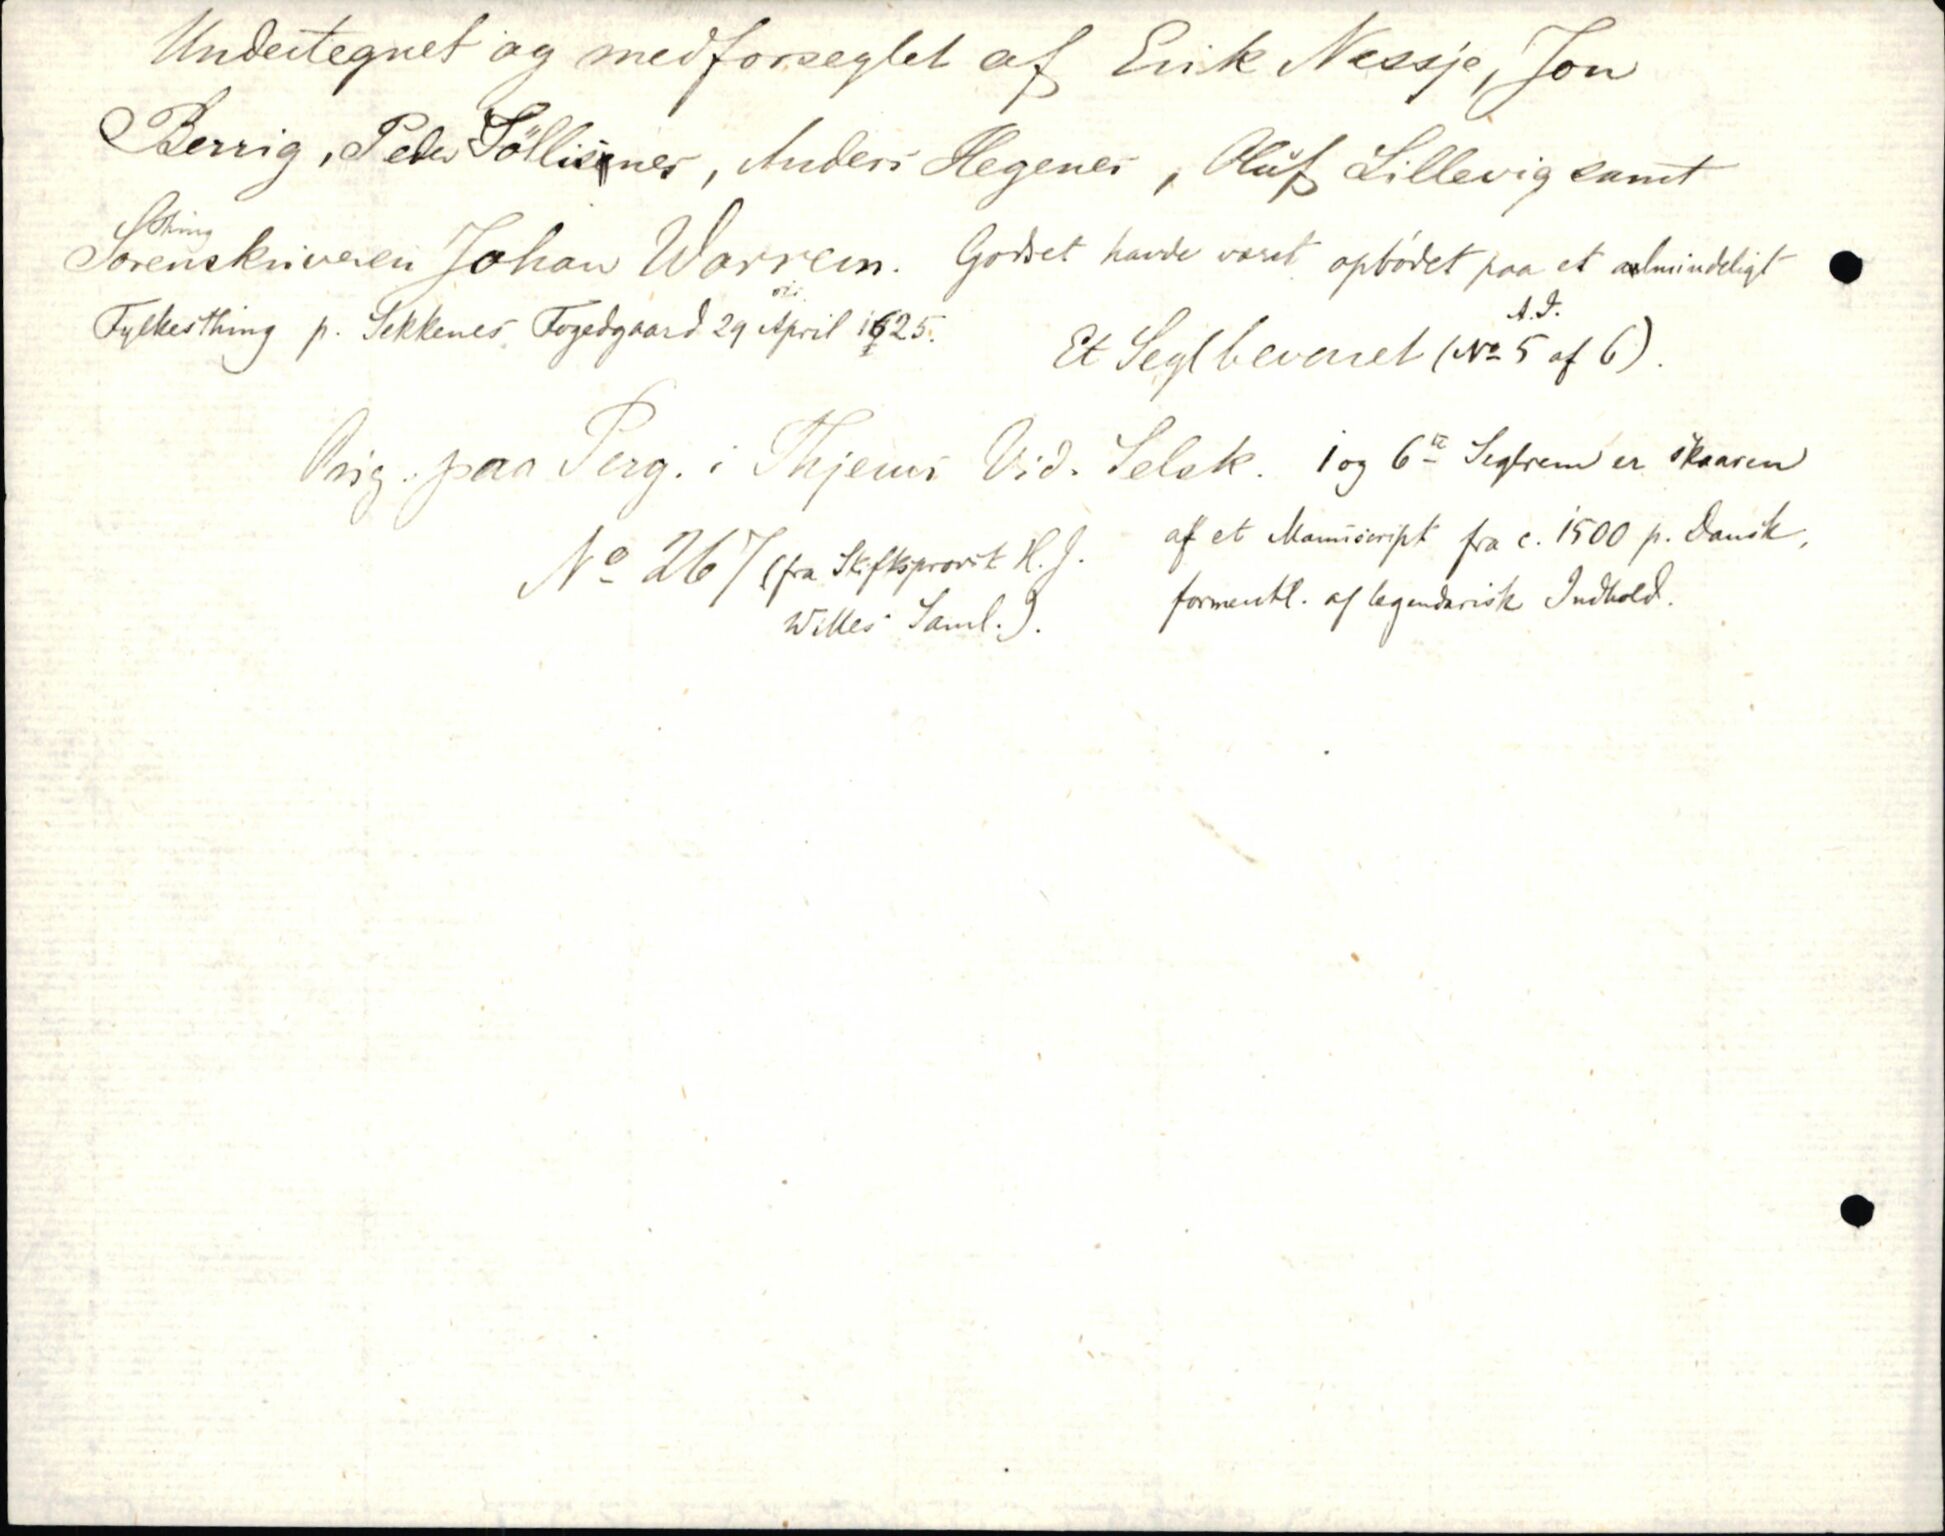 Undertegnet og medforseglet af Erik Nessje, Jon
Berrig, Peder Söllisnes, Anders Hegenes, Oluf Lillevig samt
Thing
Sorenskriveren Johan Warrem. Godset havde været opbödet paa et almindeligt
Fylkesthing p. Sekkenes Fogedgaard 29 April 1625.
A. I.
Et Segl bevaret (No 5 af 6).
Orig. paa Perg. i Thjems Vid. Selsk.
No 267 (fra Stiftsprovst H. J.
Willes Saml.).
1 og 6te Seglrem er skaaren
af et Manuscript fra c. 1500 p. Dansk,
formentl. af legendarisk Indhold.